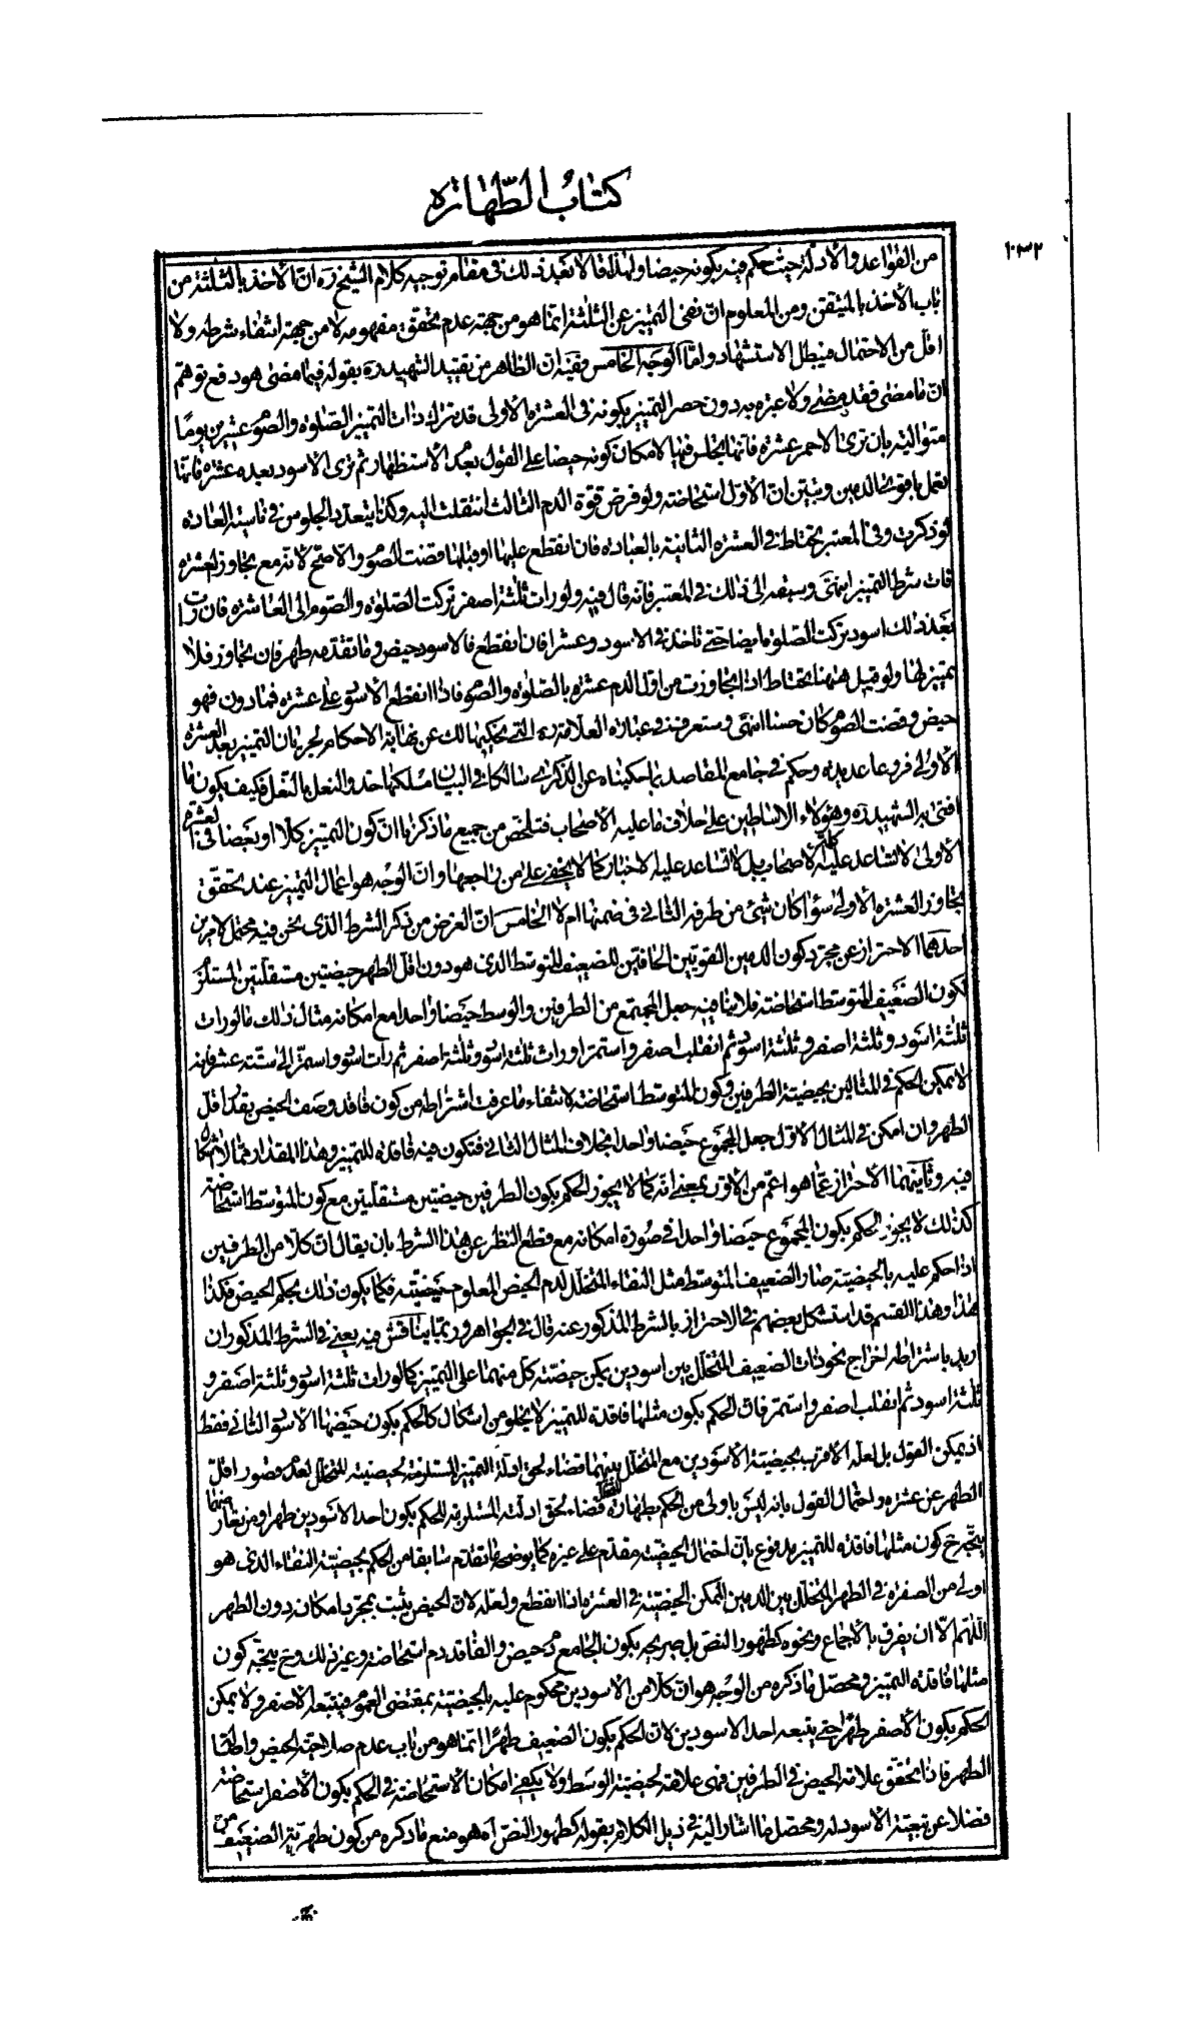 كتاب الطهارة
١٠٣٢
من القواعد والأدلة حيث حكم فيه بكونه حيضا ولهذا قال بعد ذلك في مقام توجيه كلام الشيخ ره ان الأخذ بالثلثة من
باب الأخذ بالمتيقن ومن المعلوم ان نفى التميز عن الثلثة انما هو من جهة عدم تحقق مفهومه لا من جهة انتفاء شرطه ولا
اقل من الاحتمال فيبطل الاستشهاد واما الوجه الخامس ففيه ان الظاهر من تقييد الشهيد ره بقوله فيما مضى هو دفع توهم
ان ما مضى فقد مضى ولا عبرة به دون حصر التميز بكونه في العشرة الأولى قد تترك ذات التميز الصلوة والصوم عشرين يوما
متوالية بان ترى الاحمر عشرة فانها تجلس فيها لامكان كونه حيضا على القول بعدم الاستظهار ثم ترى الأسود بعده عشرة فانها
تعمل باقوى الدمين وتبين ان الأول استحاضة ولو فرض قوة الدم الثالث انتقلت اليه وكذا يتعدد الجلوس في ناسية العادة
لو ذكرت وفى المعتبر تحتاط في العشرة الثانية بالعبادة فان انقطع عليها او قبلها قضت الصوم والأصح لا نه مع تجاوز العشرة
فات شرط التميز انتهى وسبقه الى ذلك في المعتبر فانه قال فيه ولو رات ثلثة اصفر تركت الصلوة والصوم الى العاشرة فان رات
بعد ذلك اسود تركت الصلوة ايضا حتى تاخذ في الاسود وعشرا فان انقطع فالاسود حيض وما تقدمه طهر فان تجاوز فلا
تميز لها ولو قيل ههنا تحتاط اذا تجاوزت من اول الدم عشرة بالصلوة والصوم فاذا انقطع الأسود على عشرة فما دون فهو
حيض وقضت الصوم كان حسنا انتهى وستعرف في عبارة العلامة ره التي نحكيها لك عن نهاية الاحكام لجريان التميز بعد العشرة
الأولى فروعا عديدة وحكم في جامع المقاصد بما حكيناه عن الذكرى سالكا في البيان مسلكها حذو النعل بالنعل فكيف يكون ما
افتى به الشهيد ره وهؤلاء الاساطين على خلاف ما عليه الأصحاب فتلخص من جميع ما ذكرنا ان كون التميز كلا او بعضا في العشرة
الأولى لا تساعد عليه كلمة الاصحاب بل لا تساعد عليه الاخبار كما لا يخفى على من راجعها وان الوجه هو اعمال التميز عند تحقق
تجاوز العشرة الأولى سواء كان شئ من طرفه الثاني في ضمنها ام لا الخامس ان الغرض من ذكر الشرط الذي نحن فيه محتمل لامرين
احدهما الاحتراز عن مجرد كون الدمين القويين الحافتين للضعيف المتوسط الذي هو دون اقل الطهر حيضتين مستقلتين المستلزم
لكون الضعيف المتوسط استحاضة فلا ينافيه جعل المجتمع من الطرفين والوسط حيضا واحدا مع امكانه مثال ذلك ما لو رات
ثلثة اسود وثلثة اصفر وثلثة اسود ثم انقلب اصفر واستمر او رات ثلثة اسود وثلثة اصفر ثم رات اسود واستمر الى ستة عشر فانه
لا يمكن الحكم في المثالين بحيضية الطرفين وكون المتوسط استحاضة لانتفاء ما عرفت اشتراطه من كون فاقد وصف الحيض بقدر اقل
الطهر وان امكن في المثال الأول جعل المجموع حيضا واحدا بخلاف المثال الثاني فتكون فيه فاقدة للتميز وهذا المقدار مما لا اشكال
فيه وثانيهما الاحتراز عما هو اعم من الأول بمعنى انه كما لا يجوز الحكم بكون الطرفين حيضتين مستقلتين مع كون المتوسط استحاضة
كذلك لا يجوز الحكم بكون المجموع حيضا واحدا في صورة امكانه مع قطع النظر عن هذا الشرط بان يقال ان كلا من الطرفين
اذا حكم عليه بالحيضية صار الضعيف المتوسط مثل النقاء المتخلل لدم الحيض المعلوم حيضيته فكما يكون ذلك بحكم الحيض فكذا
هذا وهذا القسم قد استشكل بعضهم في الاحتراز بالشرط المذكور عنه قال في الجواهر وربما يناقش فيه يعني في الشرط المذكور ان
اريد باشتراطه اخراج نحو ذات الضعيف المتخلل بين اسودين يمكن حيضية كل منهما على التميز كما لو رات ثلثة اسود وثلثة اصفر و
ثلثة اسود ثم انقلب اصفر واستمر فان الحكم بكون مثلها فاقدة للتميز لا يخلو من اشكال كالحكم بكون حيضها الاسود الثاني فقط
اذ يمكن القول بل لعله الاقرب بحيضية الأسودين مع المتخلل بينهما قضاء لحق ادلة التميز المستلزمة لحيضية المتخلل بعدم قصور اقل
الطهر عن عشرة واحتمال القول بانه ليس باولى من الحكم بطهارة المتخلل قضاء لحق ادلته المستلزمة للحكم بكون احد الاسودين طهرا ومن تعارضهما
يتجه ح كون مثلها فاقدة للتميز مدفوع بان احتمال الحيضية مقدم على غيره كما يوضحه ما تقدم سابقا من الحكم بحيضية النقاء الذي هو
اولى من الصفرة في الطهر المتخلل بين الدمين الممكن الحيضية في العشرة اذا انقطع ولعله لان الحيض يثبت بمجرد امكانه دون الطهر
اللهم الا ان يفرق بالاجماع ونحوه كظهور النص بل صريحه بكون الجامع دم حيض والفاقد دم استحاضة وغير ذلك وح يتجه كون
مثلها فاقدة التميز ومحصل ما ذكره من الوجه هو ان كلا من الأسودين محكوم عليه بالحيضية بمقتضى العموم فيتبعه الاصفر ولا يمكن
الحكم بكون الأصفر طهرا حتى يتبعه احد الاسودين لان الحكم بكون الضعيف طهرا انما هو من باب عدم صلاحية الحيض واما
الطهر فاذا تحقق علامة الحيض في الطرفين فهى علامة لحيضية الوسط ولا يكفى امكان الاستحاضة في الحكم بكون الأصفر استحاضة
فضلا عن تبعية الأسود له ومحصل ما اشار اليه في ذيل الكلام بقوله كظهور النص اه هو منع ما ذكره من كون طهرية الضعيف من